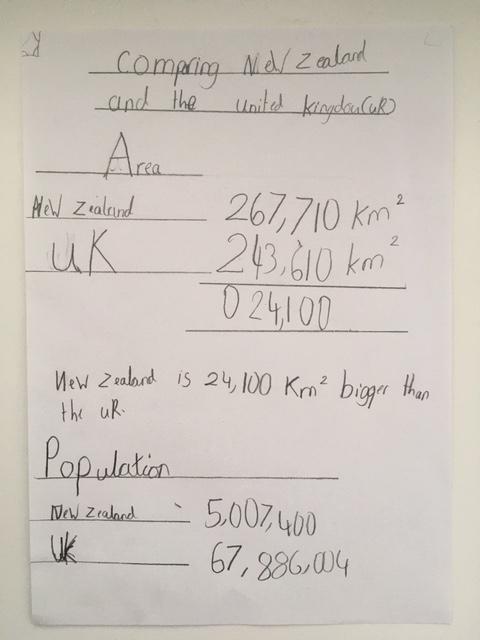 Compring New Zealand
and the united kingdon(uK)
Area
New Zealand 267,710 Km²
UK 243,610 km²
024,100
New Zealand is 24,100 Km² bigger than
the uK.
Population
New Zealand 5,007,400
UK 67,886,004